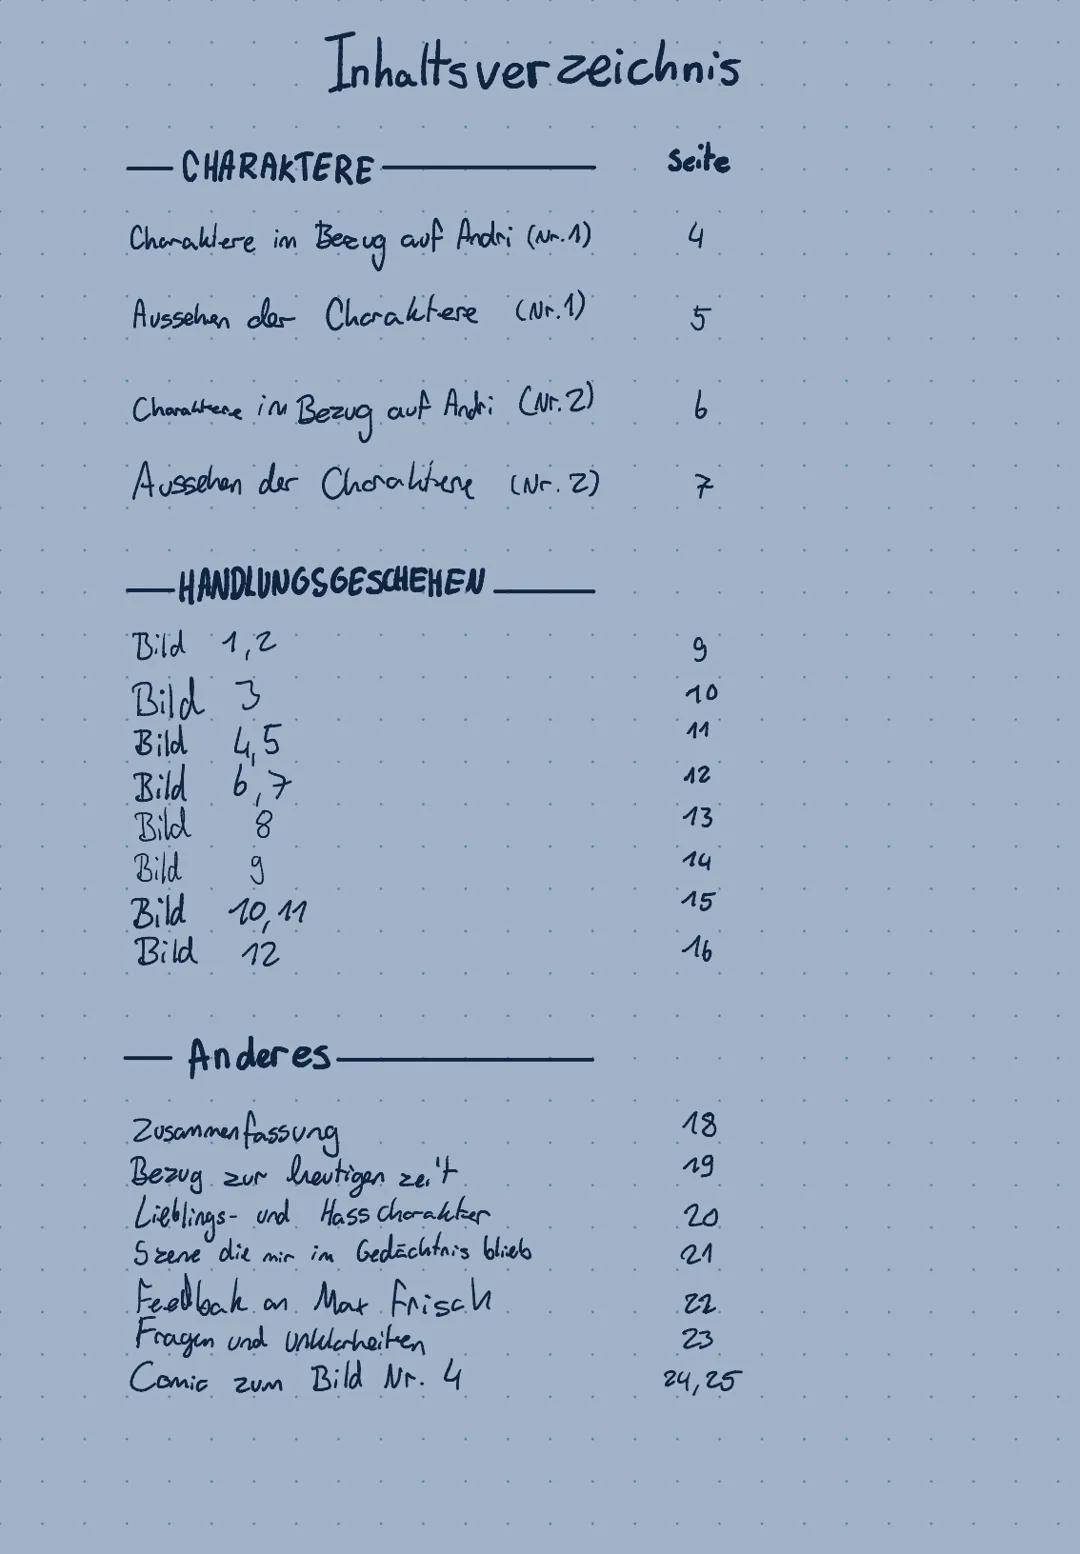 Inhaltsverzeichnis
CHARAKTERE Seite
Charaktere im Bezug auf Andri (Nr.1) 4
Aussehen der Charaktere (Nr.1) 5
Charaktere im Bezug auf Andri (Nr.2) 6
Aussehen der Charaktere (Nr.2) 7
HANDLUNGSGESCHEHEN
Bild 1,2 9
Bild 3 10
Bild 4,5 11
Bild 6,7 12
Bild 8 13
Bild 9 14
Bild 10,11 15
Bild 12 16
Anderes
Zusammenfassung 18
Bezug zur heutigen zeit 19
Lieblings- und Hasscharakter 20
Szene die mir im Gedächtnis blieb 21
Feedbak an Max Frisch 22
Fragen und Unklarheiten 23
Comic zum Bild Nr. 4 24,25